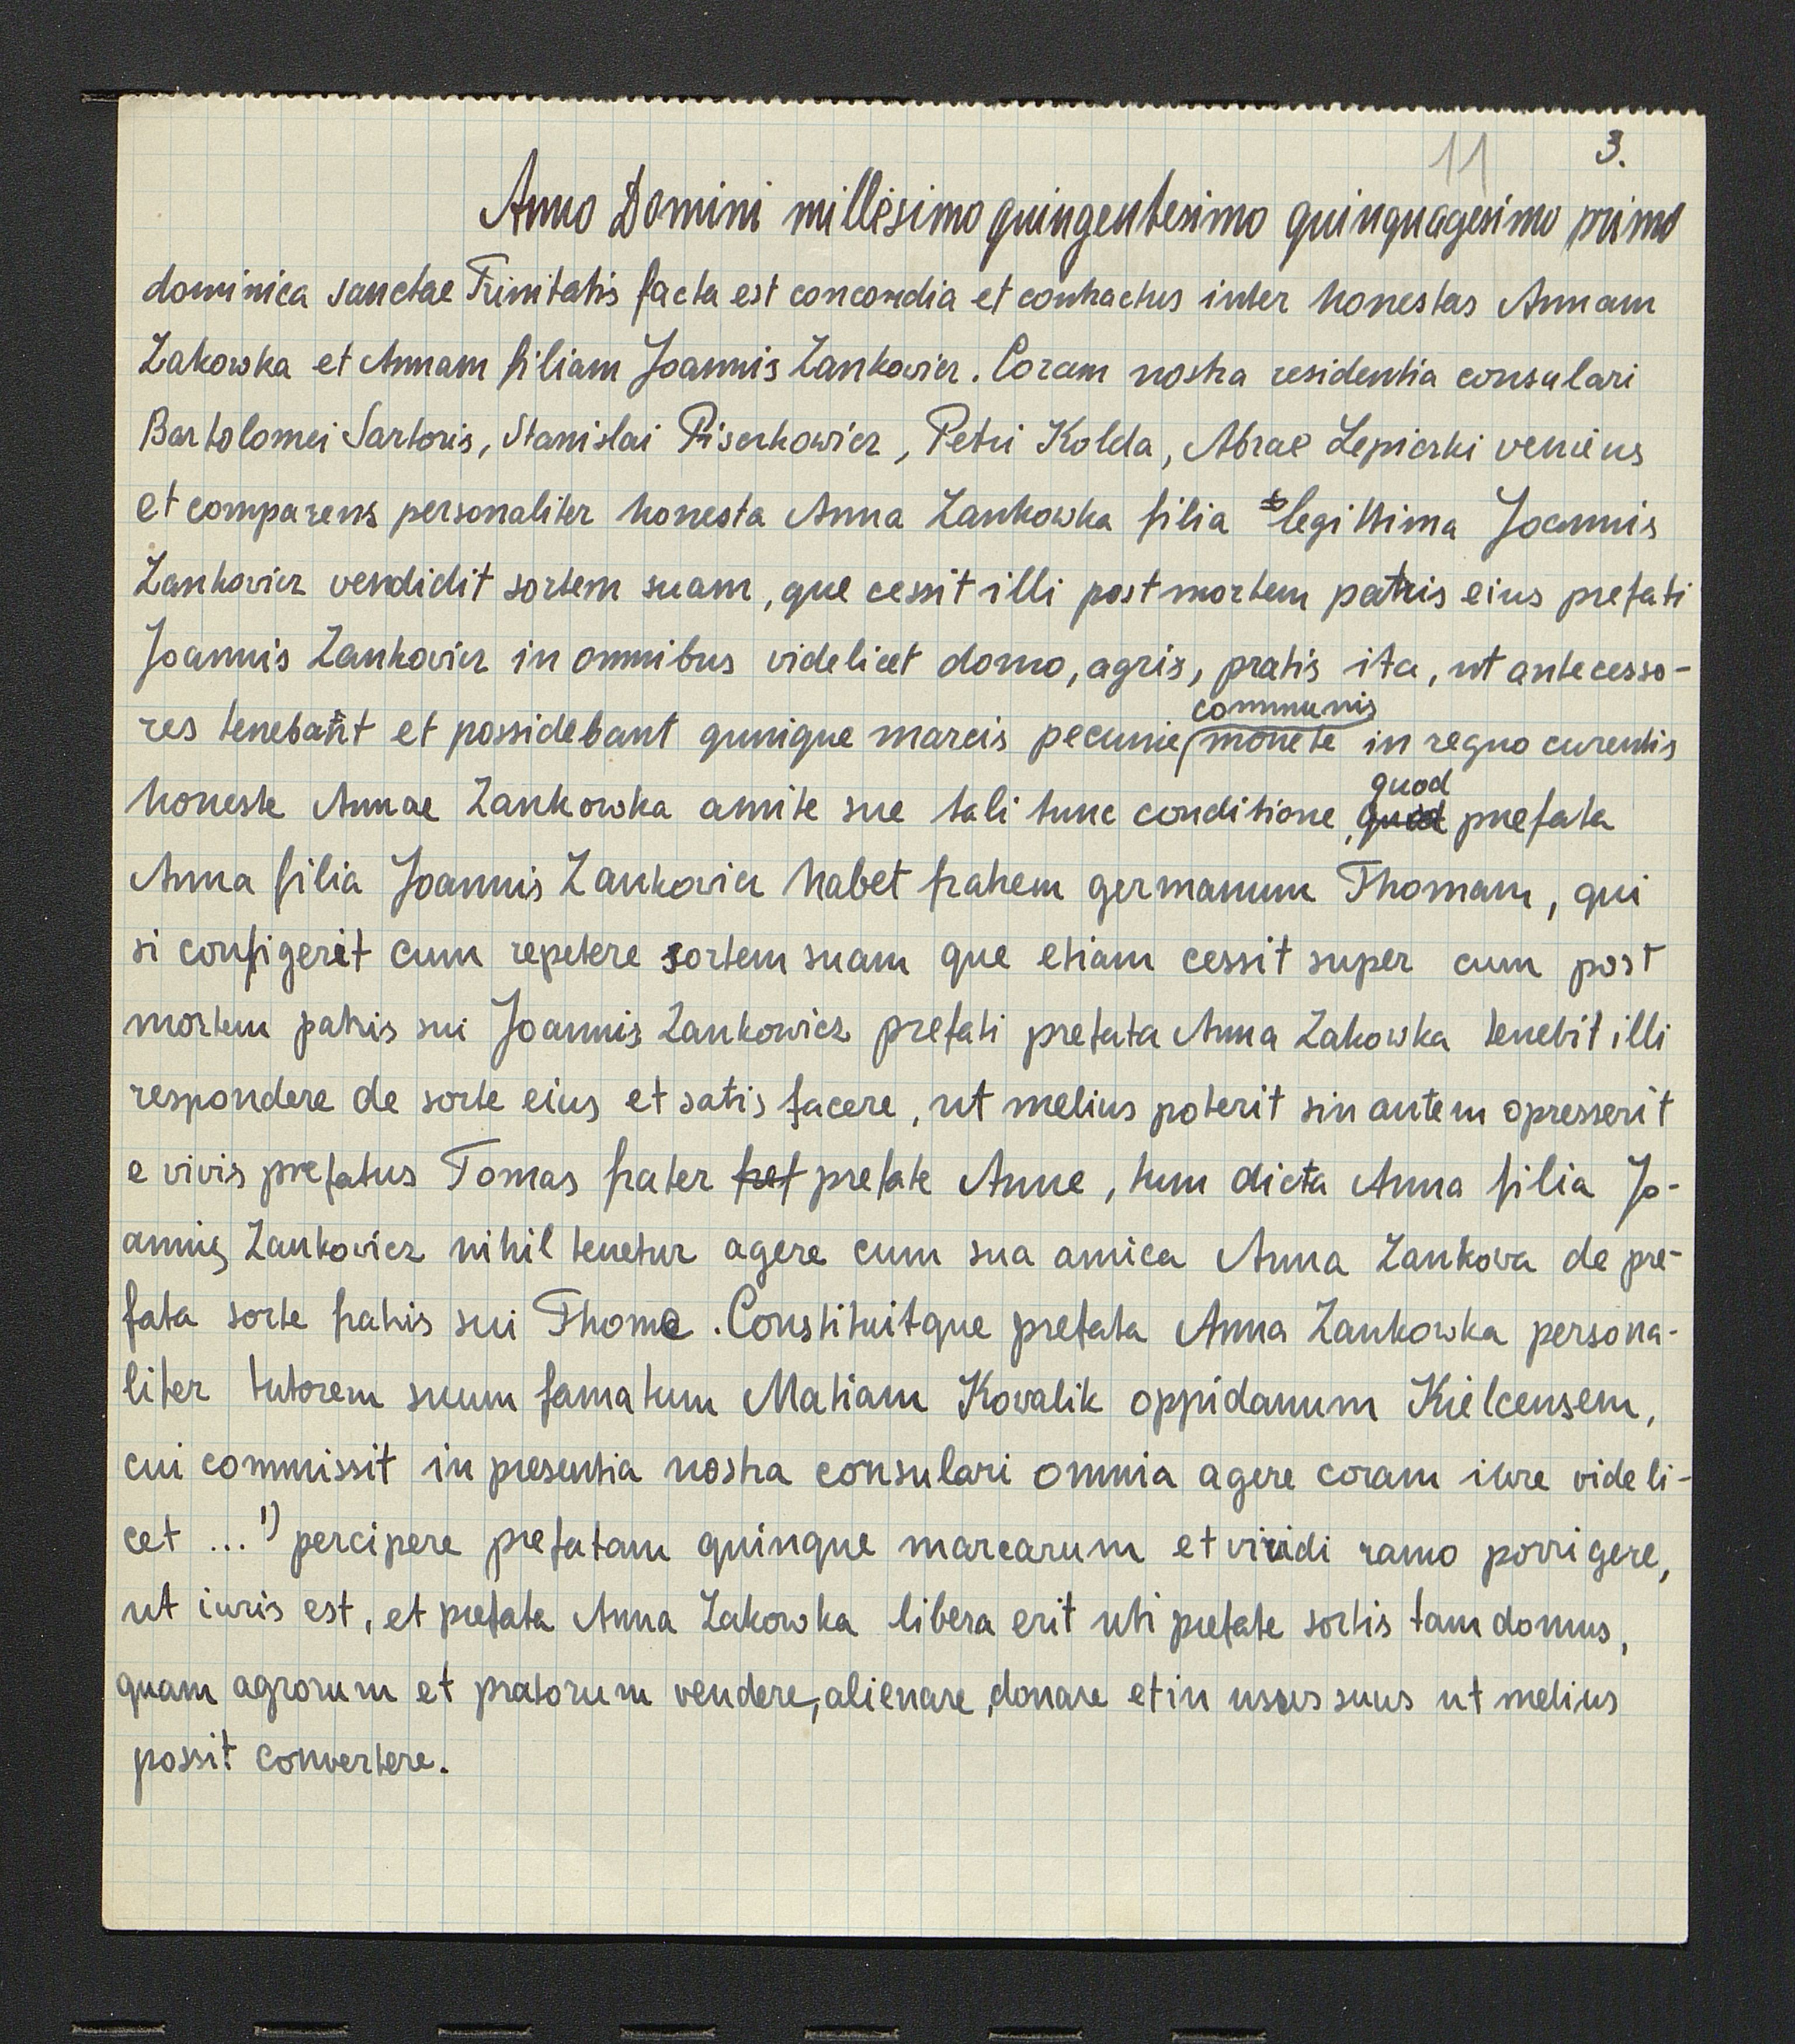 11 3.
Anno Domini millesimo quingentesimo quinquagesimo primo
dominica sanctae Trinitatis facta est concordia et contractus inter honestas Annam
Zakowka et Annam filiam Joannis Zankowicz. Coram nostra residentia consulari
Bartolomei Sartoris, Stanislai Piserkowicz, Petri Kolda, Abrae Lepiarki veniens
et comparens personaliter honesta Anna Zankowka filia legittima Joannis
Zankovicz vendidit sortem suam, que cessit illi post mortem patris eius prefati
Joannis Zankovicz in omnibus videlicet domo, agris, pratis ita, ut antecesso-
res tenebant et possidebant qunique marcis pecunie communis monete in regno curentis
honeste Annae Zankowka amite sue tali tunc conditione, quod prefata
Anna filia Joannis Zankovicz habet fratrem germanum Thomam, qui
si configerit cum repetere sortem suam que etiam cessit super cum post
mortem patris sui Joannis Zankowicz prefati prefata Anna Zakowka tenebit illi
respondere de sorte eius et satis facere, ut melius poterit sin autem opresserit
e vivis prefatus Tomas frater pref prefate Anne, tum dicta Anna filia Jo-
annis Zankovicz nihil tenetur agere cum sua amica Anna Zankova de pre-
fata sorte fratris sui Thome. Constituitque prefata Anna Zankowka persona-
liter tutorem suum famatum Matiam Kovalik oppidanum Kielcensem,
cui commissit in presentia nostra consulari omnia agere coram iure videli-
cet ...1) percipere prefatam quinque marcarum et viridi ramo porrigere,
ut iuris est, et prefata Anna Zakowka libera erit uti prefate sortis tam domus,
quam agrorum et pratorum vendere, alienare, donare et in usus suus ut melius
possit convertere.